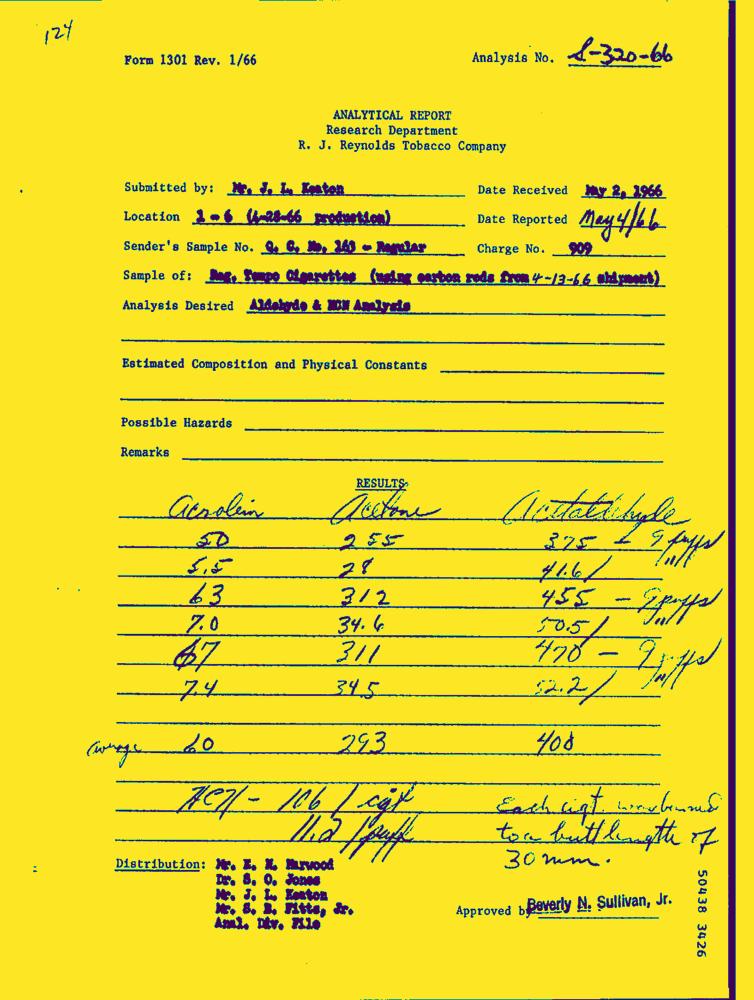 124
Form 1301 Rev. 1/66
Analysis No. S-320-66
ANALYTICAL REPORT
Research Department
R. J. Reynolds Tobacco Company
Submitted by: Mr. J. L. Keaton Date Received May 2, 1966
Location 1 - 6 (4-28-66 production) Date Reported May 4/66
Sender's Sample No. Q. C. No. 163 - Regular Charge No. 909
Sample of: Reg. Tempo Cigarettes (using carbon rods from 4-13-66 shipment)
Analysis Desired Aldehyde & HCN Analysis
Estimated Composition and Physical Constants
Possible Hazards
Remarks
RESULTS
Acrolein Acetone Acetaldehyde
50 255 375 - 9 puffs
5.5 28 41.6/puff
63 312 455 - 9 puffs
7.0 34.6 50.5/puff
67 311 470 - 9 puffs
7.4 34.5 52.2/puff
average 60 293 408
HCN - 106 / cigt Each cigt. was burned
/ puff to a butt length of
30 mm.
Distribution: Mr. E. H. Harwood
Dr. S. O. Jones
Mr. J. L. Keaton
Mr. S. B. Fitts, Jr.
Anal. Div. File
Approved by Beverly N. Sullivan, Jr.
50438 3426